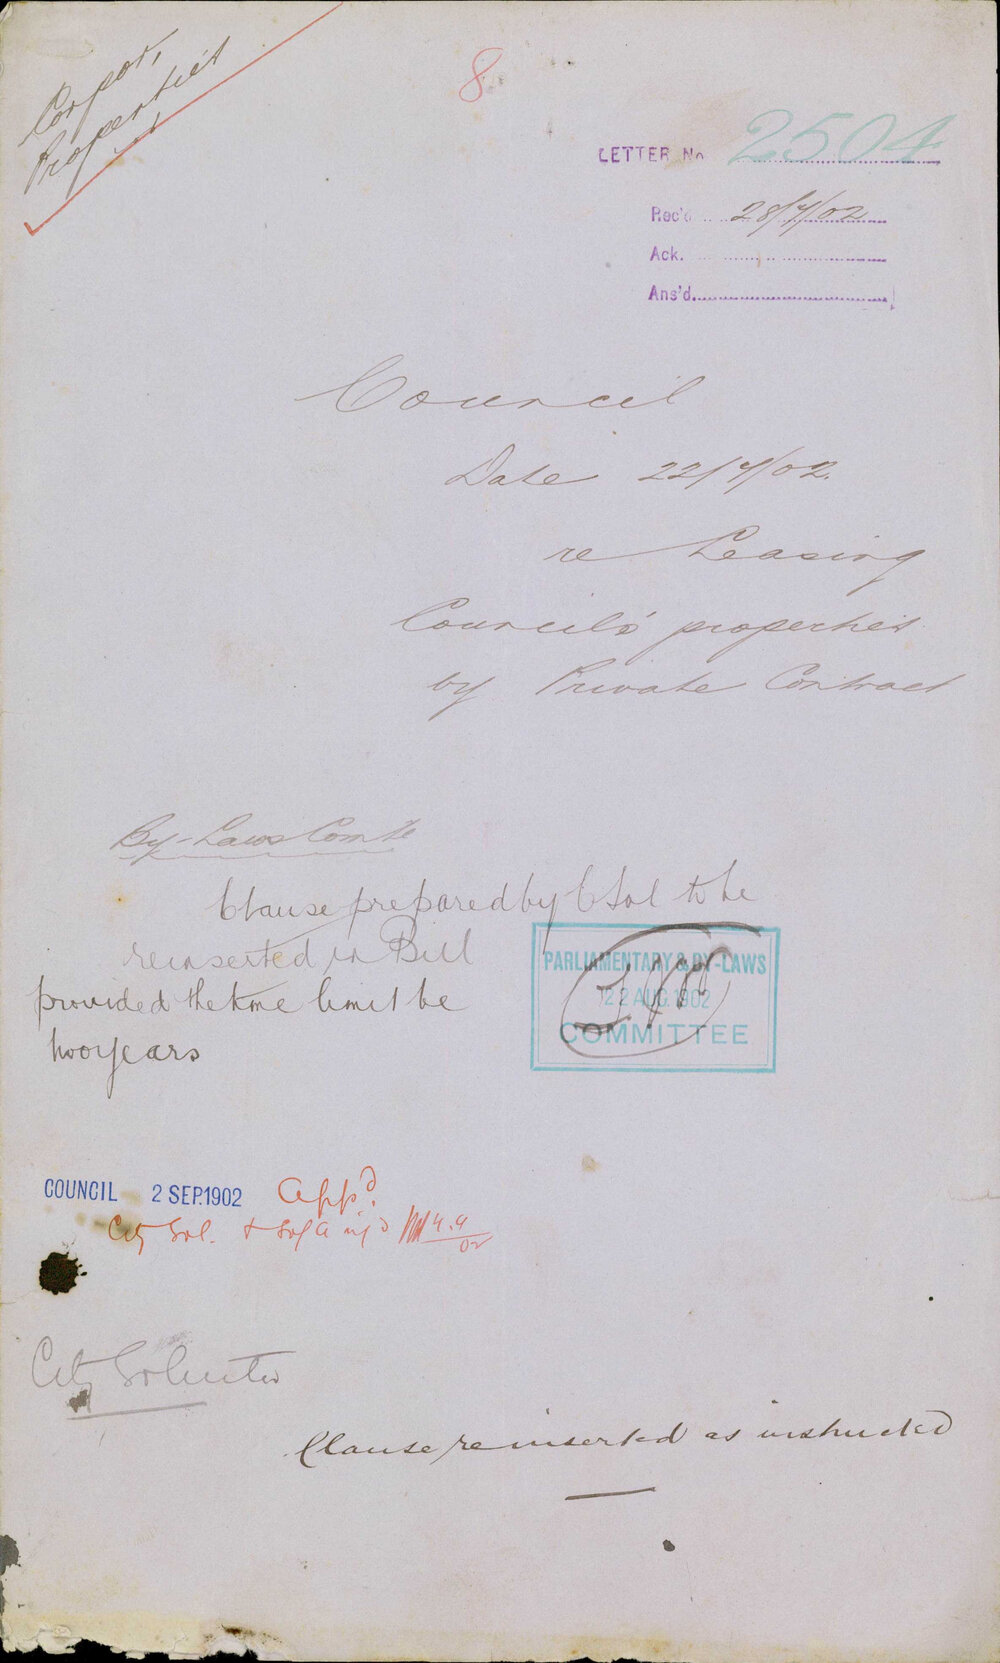 Corpor,
Properties
8
LETTER No 2504
Rec'd 28/7/02
Ack.
Ans'd.
Council
Date 22/7/02.
re Leasing
Council's properties
by Private Contract
By-Laws Comte
Clause prepared by C Sol to be
reinserted in Bill
provided the time limit be
two years
PARLIAMENTARY & BY-LAWS
22 AUG. 1902
COMMITTEE
COUNCIL 2 SEP.1902 Appd.
City Sol.
City Solicitor
Clause reinserted as instructed